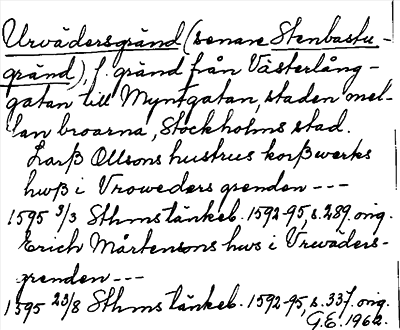 Urvädersgränd (senare Stenbastu-
gränd), f. gränd från Västerlång-
gatan till Myntgatan, staden mel-
lan broarna, Stockholms stad.
Larß Ollsons hustrus korßwerks
hwß i Vroweders grenden ---
1595 3/3 Sthms tänkeb. 1592-95, s. 289, orig.
Erich Mårtensons hws i Vrwäders-
grenden ---
1595 23/8 Sthms tänkeb. 1592-95, s. 337. orig.
G.E. 1962.